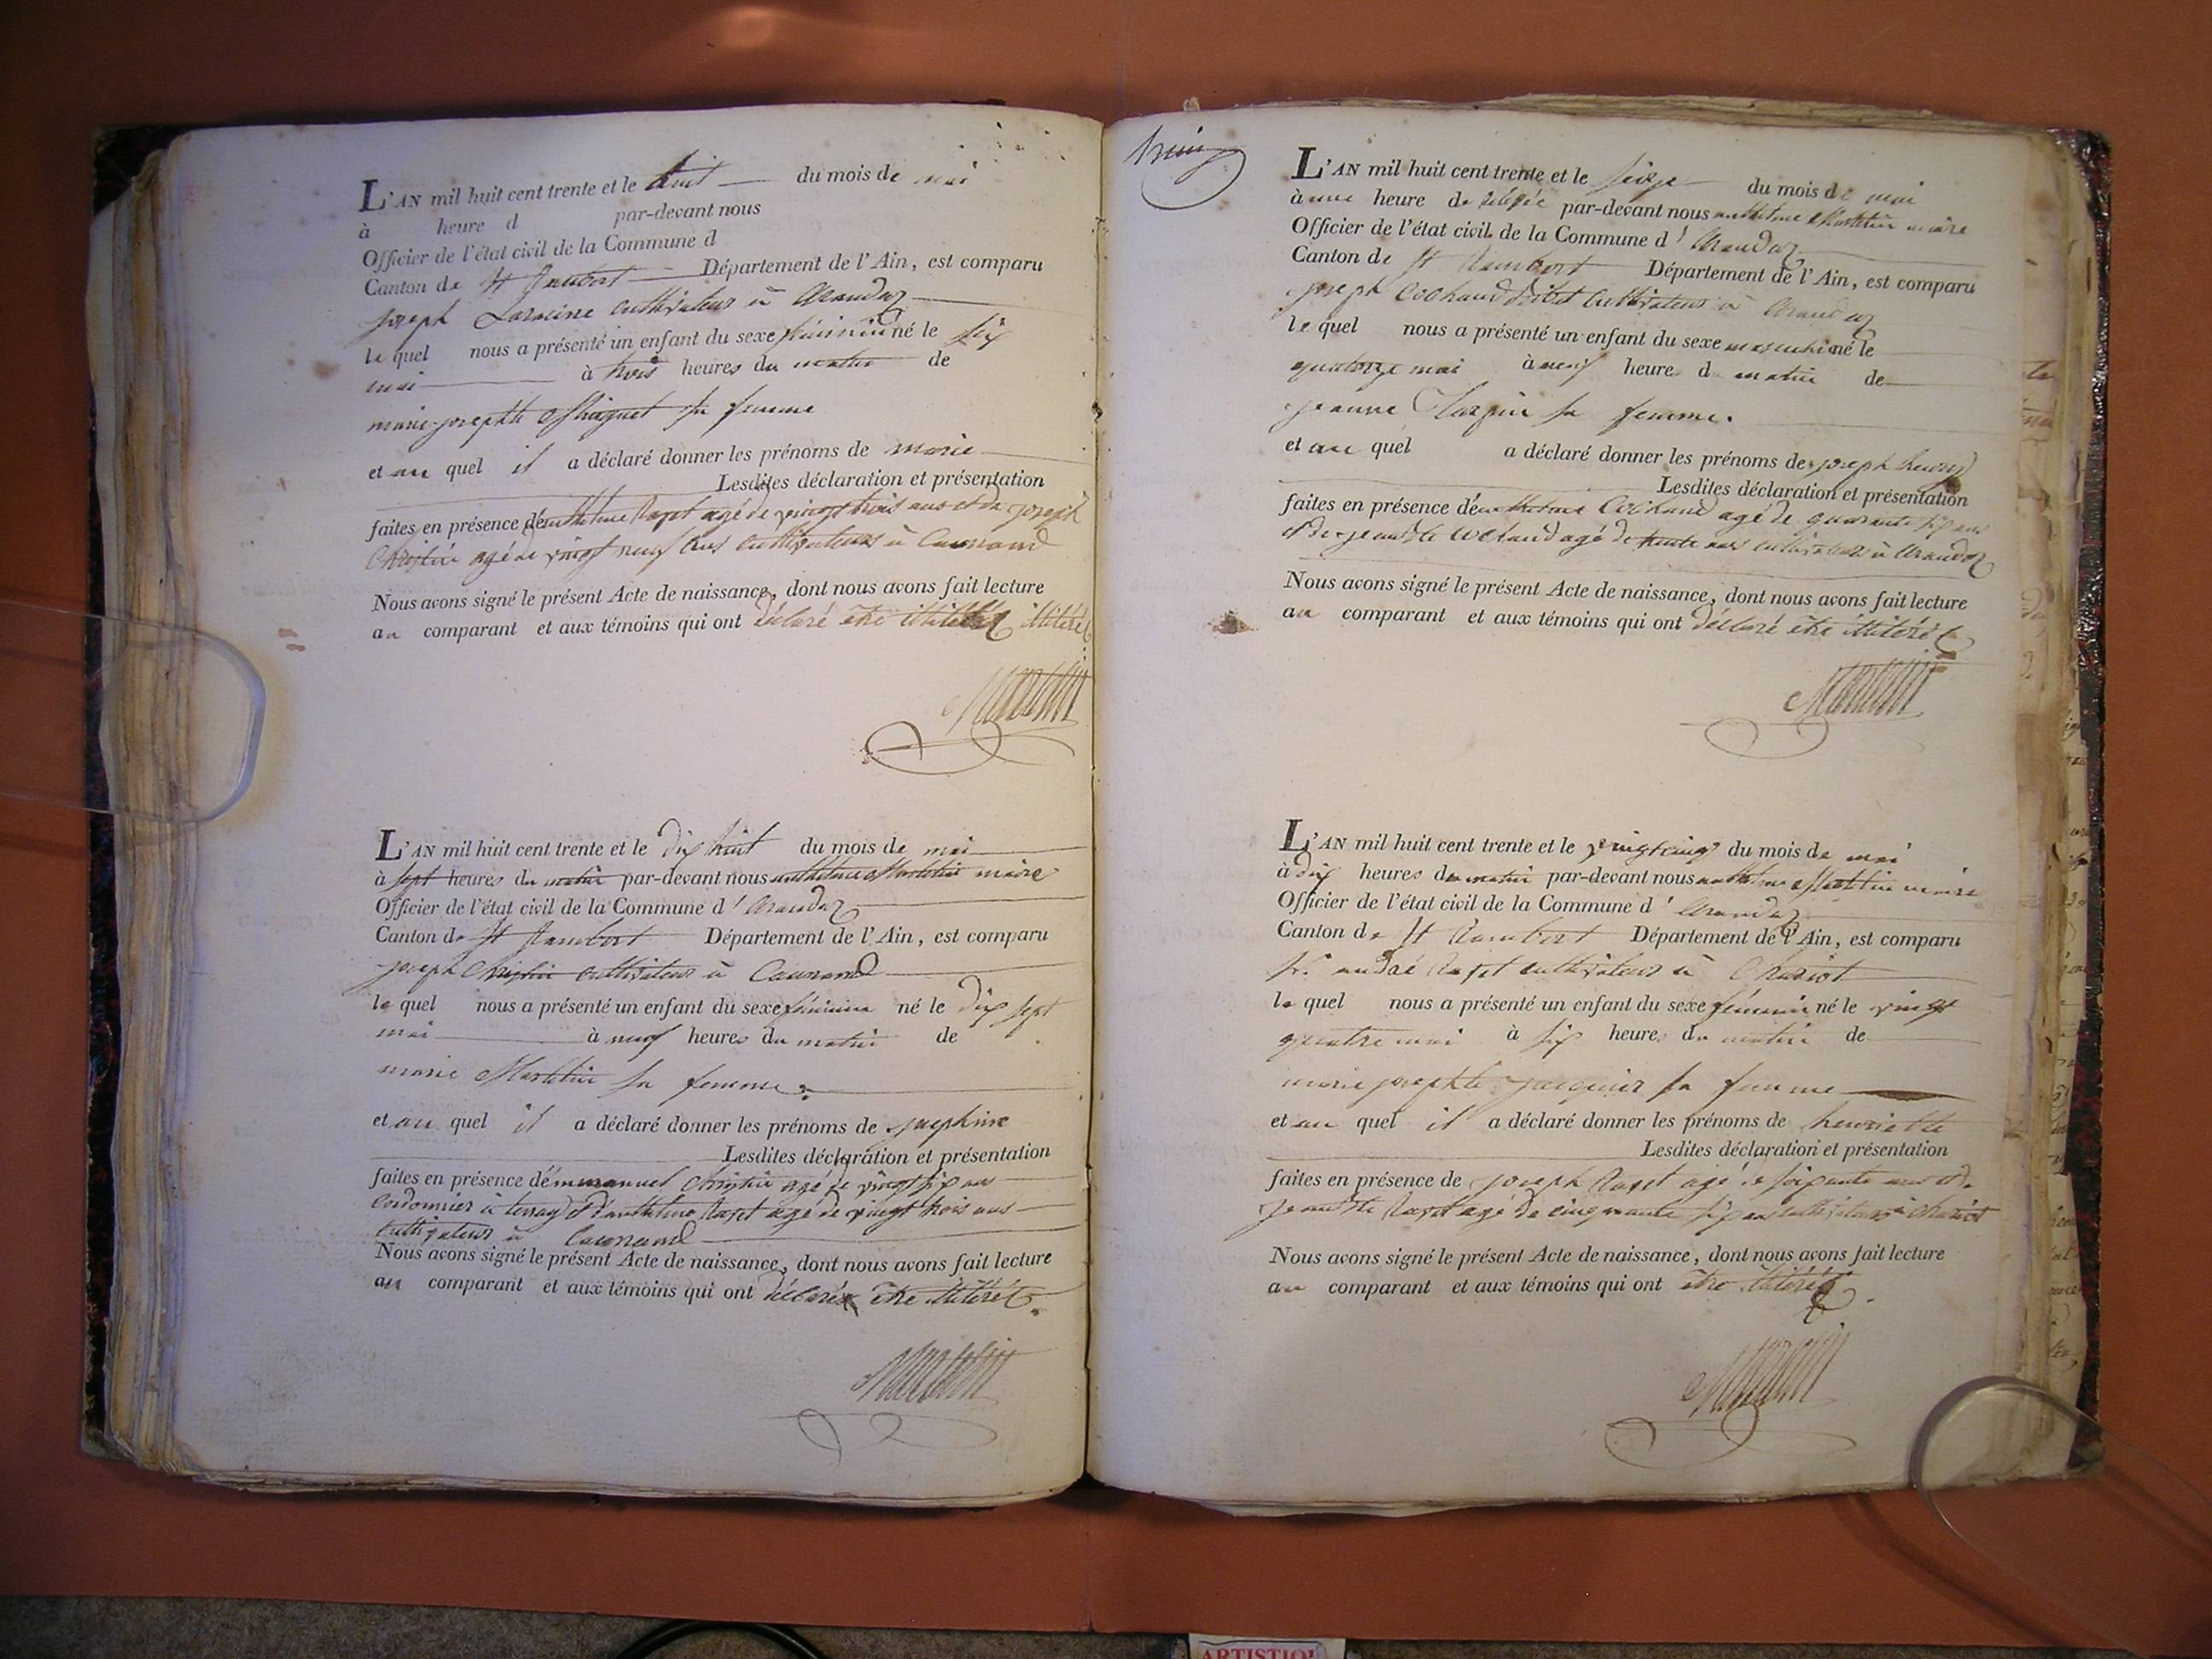 L'AN mil huit cent trente et le huit du mois de mai
à heure d par-devant nous
Officier de l'état civil de la Commune d
Canton de St Rambert Département de l'Ain, est comparu
joseph cultivateur à Arandaz
le quel nous a présenté un enfant du sexe féminin né le six
mai à trois heures du matin de
marie josephte sa femme
et au quel il a déclaré donner les prénoms de marie
Lesdites déclaration et présentation
faites en présence d'anthelme agé de vingt trois ans et de joseph
Christin agé de vingt neuf ans cultivateurs à
Nous avons signé le présent Acte de naissance, dont nous avons fait lecture
au comparant et aux témoins qui ont déclaré être
Martelin
L'AN mil huit cent trente et le dix huit du mois de mai
à sept heures du matin par-devant nous anthelme Martelin maire
Officier de l'état civil de la Commune d' Arandaz
Canton de St Rambert Département de l'Ain, est comparu
joseph Christin cultivateur à
le quel nous a présenté un enfant du sexe féminin né le dix sept
mai à neuf heures du matin de
marie Martelin sa femme.
et au quel il a déclaré donner les prénoms de josephine
Lesdites déclaration et présentation
faites en présence d'emmanuel Christin agé de vingt six ans
cordonnier à tenay et d'anthelme agé de vingt trois ans
cultivateur à
Nous avons signé le présent Acte de naissance, dont nous avons fait lecture
au comparant et aux témoins qui ont déclarés être illitérés.
Martelin
L'AN mil huit cent trente et le seize du mois de mai
à une heure de relevée par-devant nous anthelme Martelin maire
Officier de l'état civil de la Commune d' Arandaz
Canton de St Rambert Département de l'Ain, est comparu
joseph Cochaud cultivateur à Arandaz
le quel nous a présenté un enfant du sexe masculin né le
quatorze mai à neuf heures du matin de
jeanne sa femme.
et au quel a déclaré donner les prénoms de joseph henry
Lesdites déclaration et présentation
faites en présence d'anthelme Cochaud agé de quarante six ans
et de jean bte Cochaud agé de trente ans cultivateurs à Arandaz
Nous avons signé le présent Acte de naissance, dont nous avons fait lecture
au comparant et aux témoins qui ont déclaré être illitérés
Martelin
L'AN mil huit cent trente et le vingt cinq du mois de mai
à dix heures du matin par-devant nous anthelme Martelin maire
Officier de l'état civil de la Commune d' Arandaz
Canton de St Rambert Département de l'Ain, est comparu
cultivateur à
le quel nous a présenté un enfant du sexe féminin né le vingt
quatre mai à six heures du matin de
marie josephte jacquier sa femme
et au quel il a déclaré donner les prénoms de henriette
Lesdites déclaration et présentation
faites en présence de joseph agé de soixante ans et de
jean bte agé de cinquante six ans cultivateurs à
Nous avons signé le présent Acte de naissance, dont nous avons fait lecture
au comparant et aux témoins qui ont être illitérés.
Martelin